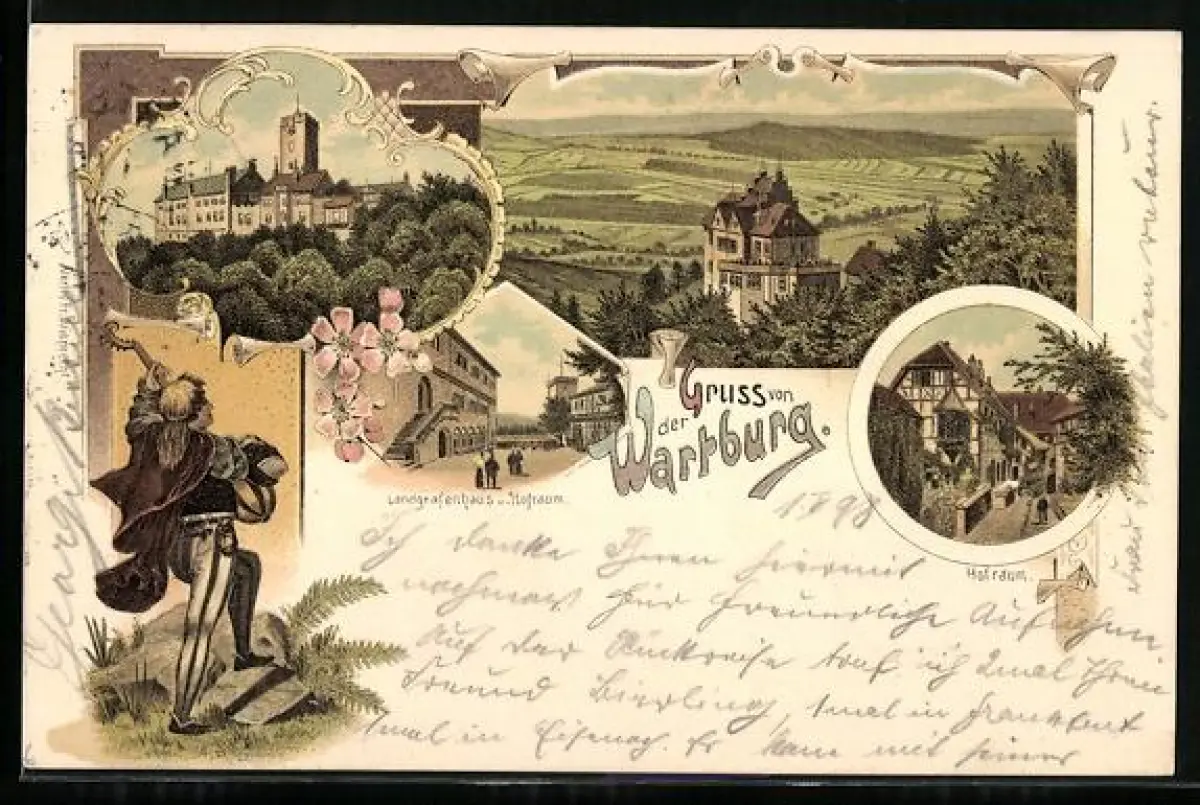 Gruss von
der
Wartburg.
Landgrafenhaus u. Hofraum.
Hofraum.
1.8.98
Ich danke Ihnen hiermit
nochmals für freundliche Aufnahme
Auf der Rückreise traf ich 2mal Ihren
Freund Bierling, 1mal in Frankfurt
1mal in Eisenach. Er kam mit seiner
Frau Italien
Georg